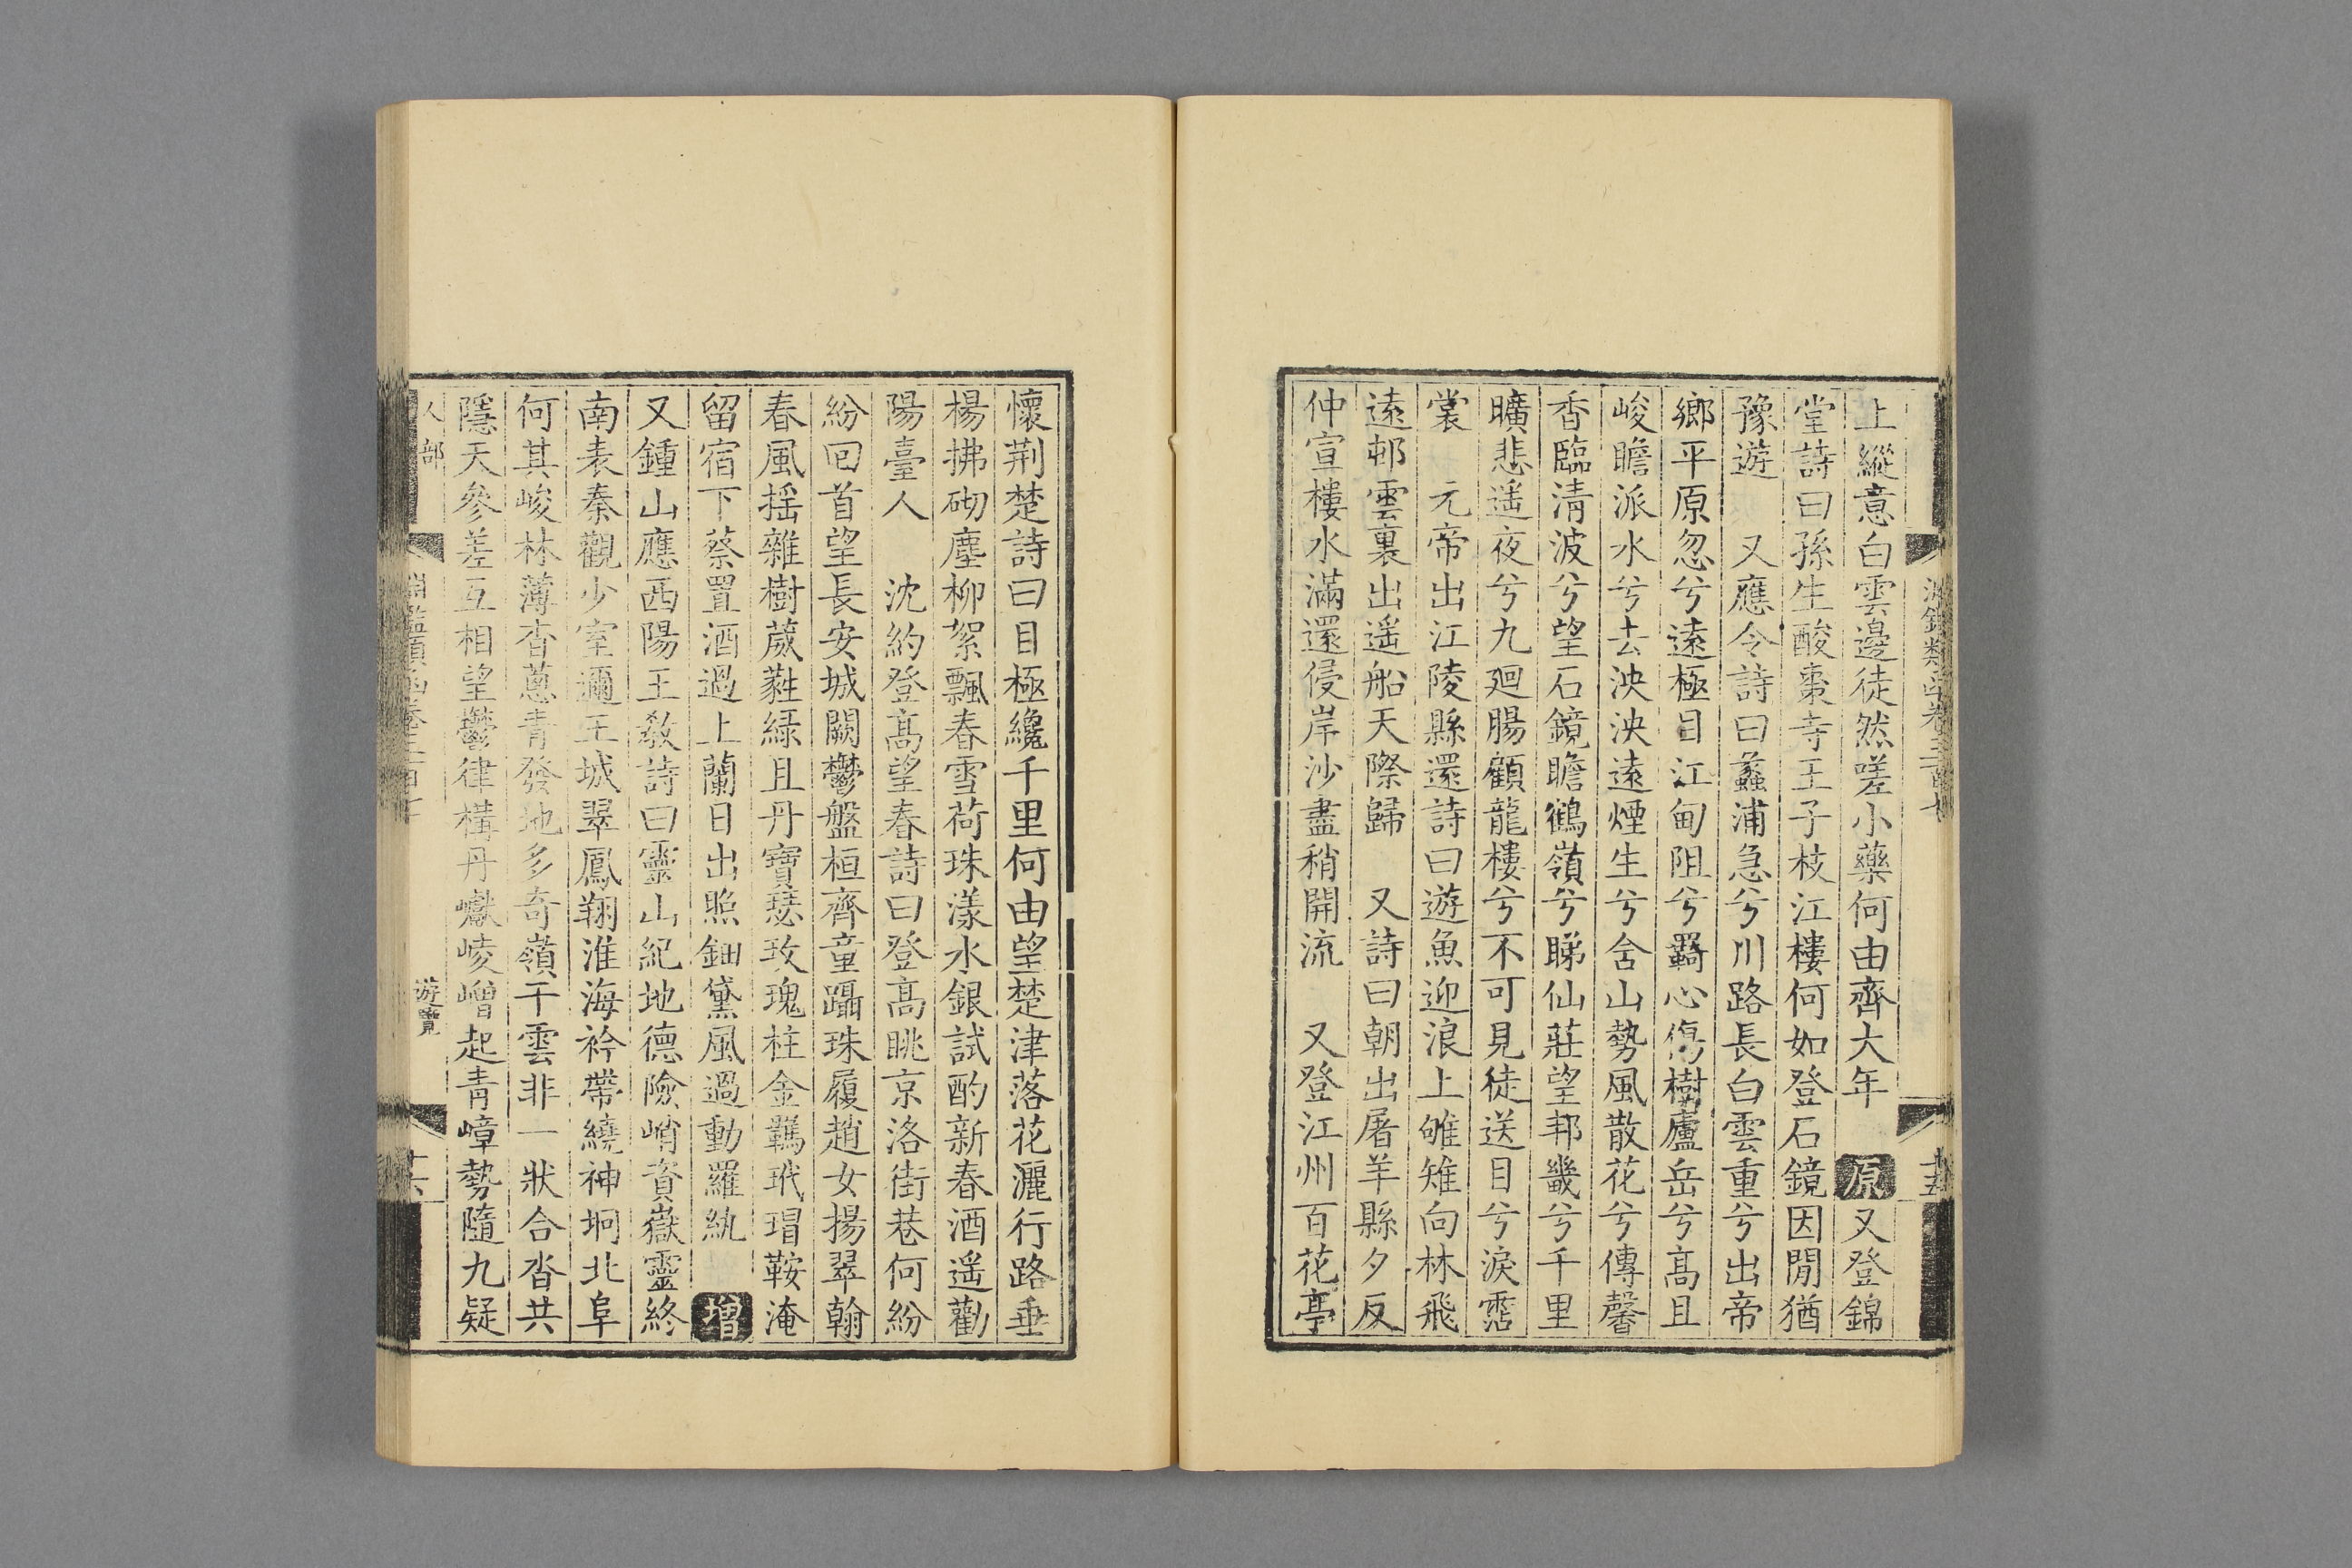 上縱意白雲邊徒然嗟小藥何由齊大年　原又登錦
堂詩曰孫生酸棗寺王子枝江樓何如登石鏡因閒猶
豫遊　又應令詩曰蠡浦急兮川路長白雲重兮出帝
鄉平原忽兮遠極目江甸阻兮羇心傷樹廬岳兮高且
峻瞻派水兮去泱泱遠煙生兮舍山勢風散花兮傳馨
香臨清波兮望石鏡瞻鶴嶺兮睇仙莊望邦畿兮千里
曠悲遥夜兮九廻腸顧龍樓兮不可見徒送目兮淚霑
裳　元帝出江陵縣還詩曰遊魚迎浪上雊雉向林飛
遠邨雲裏出遥船天際歸　又詩曰朝出屠羊縣夕反
仲宣樓水滿還侵岸沙盡稍開流　又登江州百花亭
懷荆楚詩曰目極纔千里何由望楚津落花灑行路垂
楊拂砌塵柳絮飄春雪荷珠漾水銀試酌新春酒遥勸
陽臺人　沈約登高望春詩曰登高眺京洛街巷何紛
紛回首望長安城闕鬱盤桓齊童躡珠履趙女揚翠翰
春風摇雜樹葳蕤緑且丹寶瑟玫瑰柱金羈玳瑁鞍淹
留宿下蔡置酒過上蘭日出照鈿黛風過動羅紈　增
又鍾山應西陽王敎詩曰靈山紀地德險峭資嶽靈終
南表秦觀少室邇王城翠鳳翔淮海衿帶繞神坰北阜
何其峻林薄杳蔥青發地多奇嶺干雲非一狀合沓共
隱天參差互相望鬱律構丹巘崚嶒起青嶂勢隨九疑
人部
遊覽